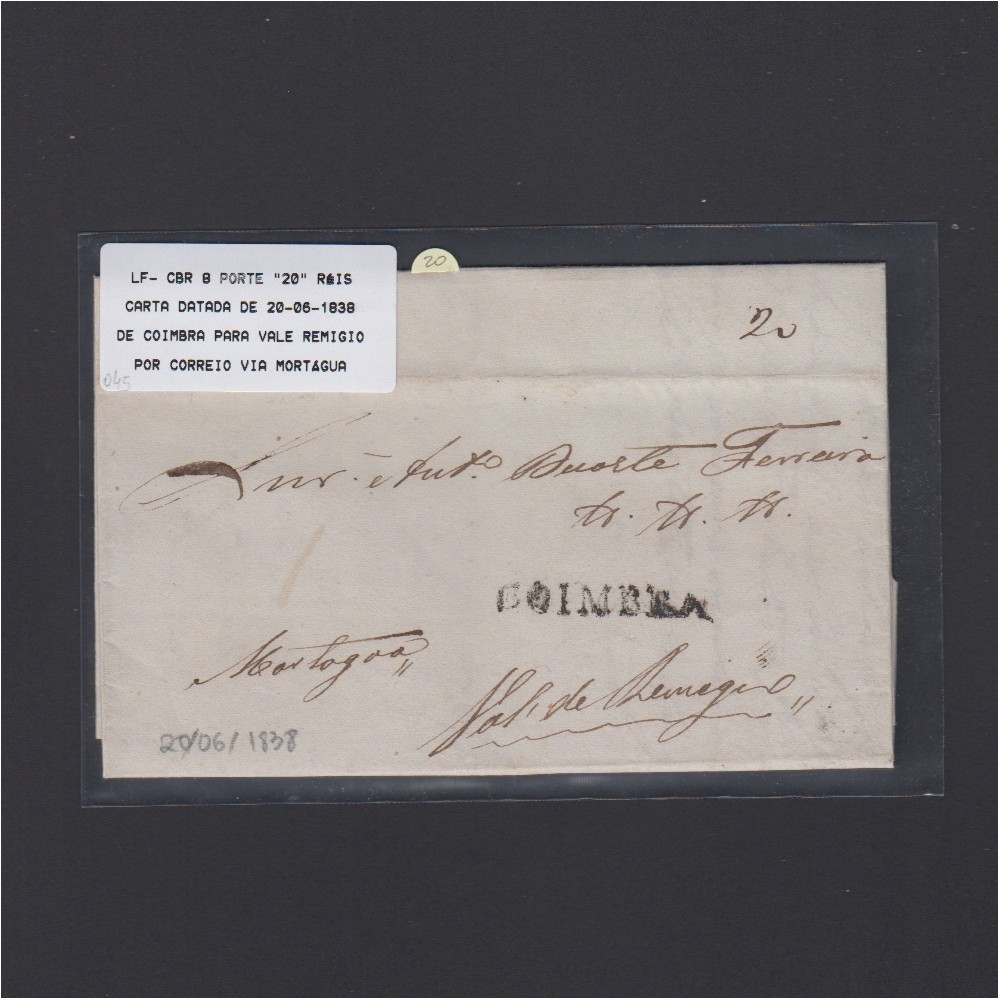 LF- CBR 8 PORTE "20" RÉIS
CARTA DATADA DE 20-06-1838
DE COIMBRA PARA VALE REMIGIO
POR CORREIO VIA MORTÁGUA
045
20
20
Snr. Anto. Duarte Ferreira
COIMBRA
Mortagoa
Val de Remigio
20/06/1838